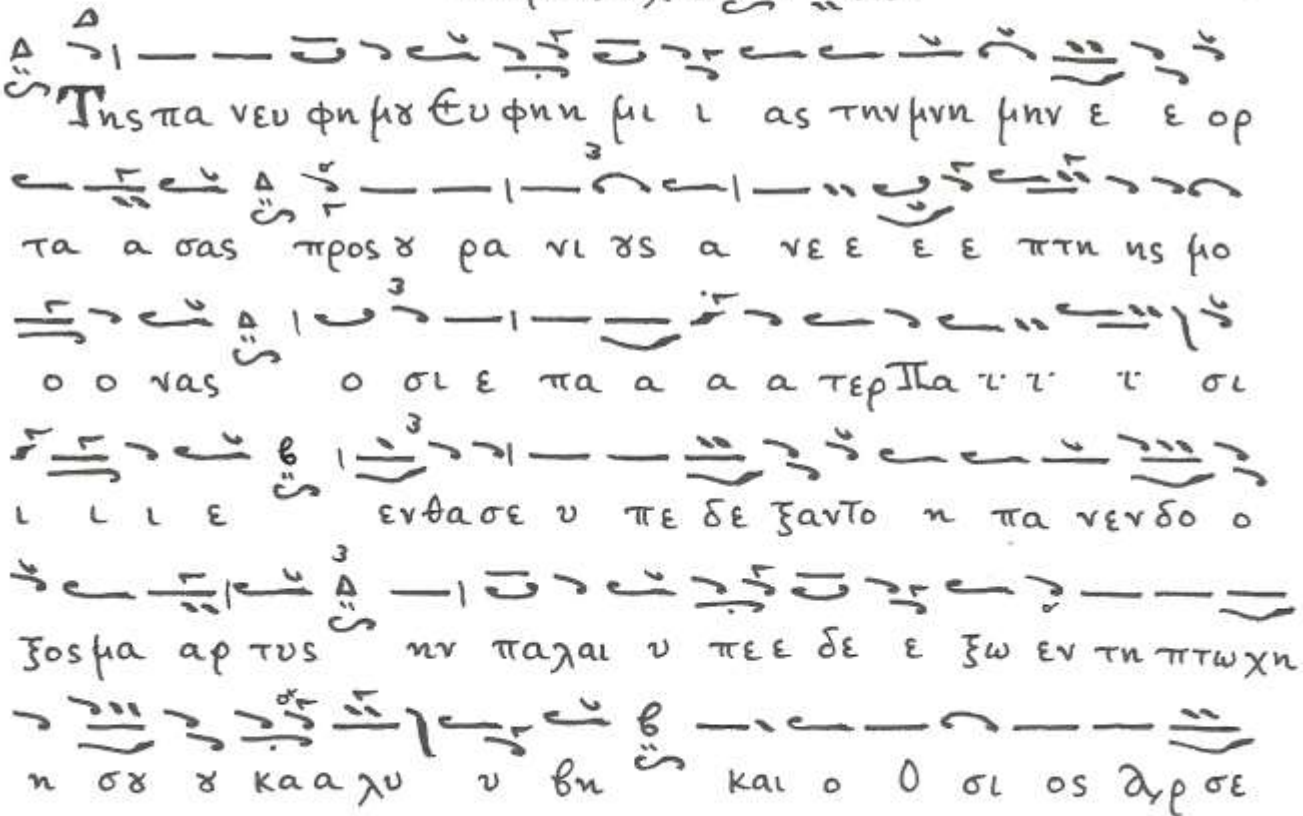 Της πα νευ φη μȣ Ευ φηη μι ι ας την μνη μην ε ε ορ
τα α σας προς ȣ ρα νι ȣς α νε ε ε ε πτη ης μο
ο ο νας ο σι ε πα α α α τερ Πα τ τ τ σι
ι ι ι ε ενθα σε υ πε δε ξαντο η πα νενδο ο
ξος μα αρ τυς ην παλαι υ πεε δε ε ξω εν τη πτωχη
η σȣ ȣ καα λυ υ βη και ο Ο σι ος σε